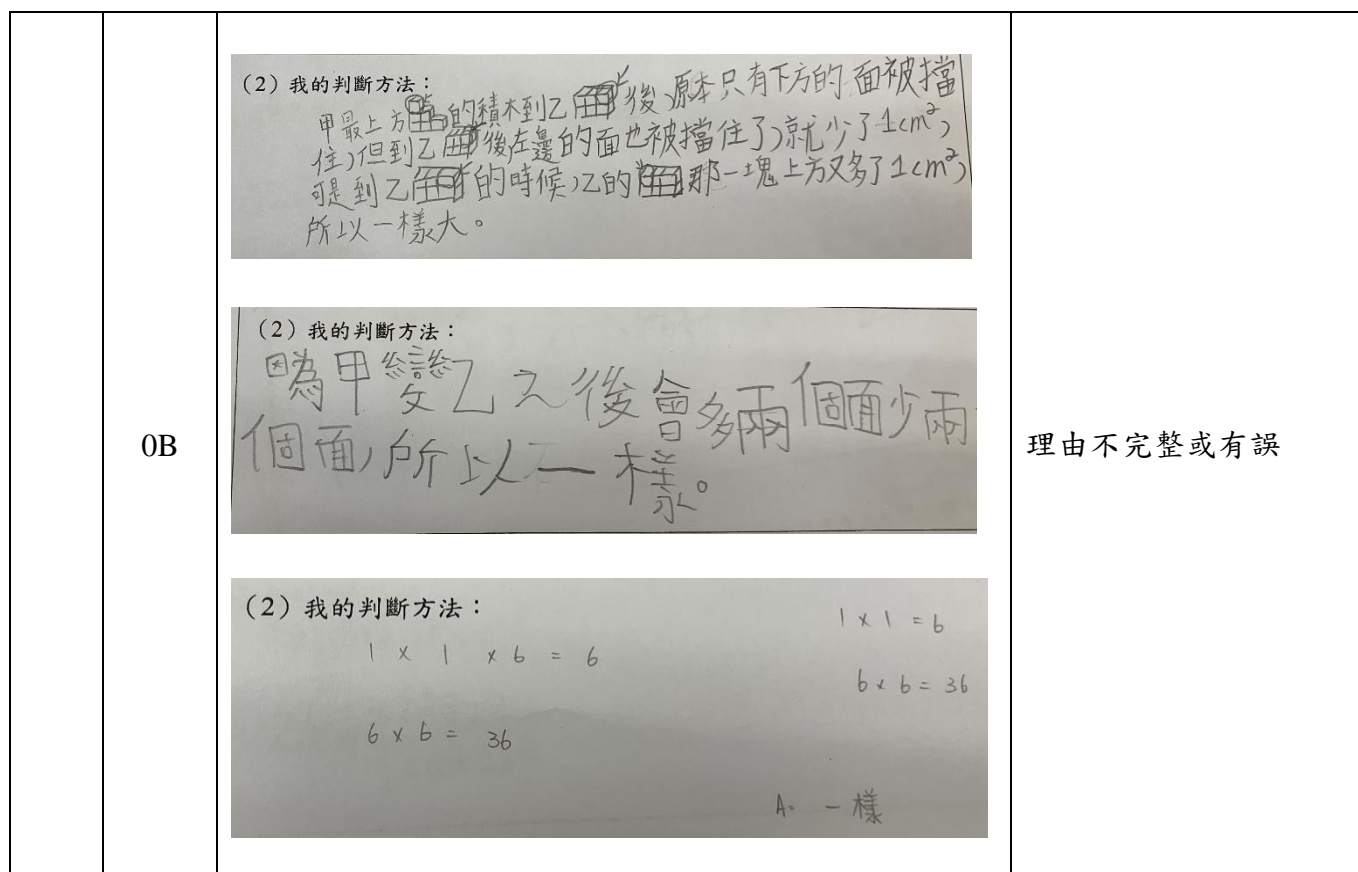 0B
(2)我的判斷方法：
甲最上方的積木到乙後,原本只有下方的面被擋
住,但到乙後左邊的面也被擋住了,就少了1cm²,
可是到乙的時候,乙的那一塊上方又多了1cm²,
所以一樣大。
(2)我的判斷方法：
因為甲變乙之後會多兩個面少兩
個面,所以一樣。
(2)我的判斷方法：
1 × 1 × 6 = 6
6 × 6 = 36
1 × 1 = 6
6 × 6 = 36
A. 一樣
理由不完整或有誤